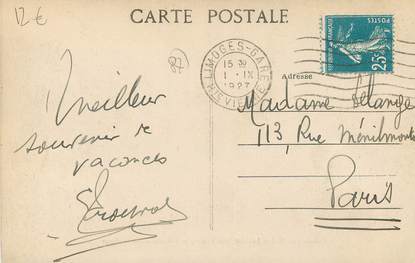 12 €
CARTE POSTALE
87
LIMOGES-GARE
15 30
1 - IX
1927
Hte VIENNE
POSTES
25c
Adresse
Meilleur
souvenir de
vacances
Madame Delange
113, Rue Ménilmont
Paris